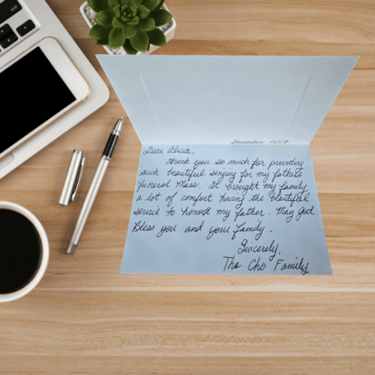 December 2019
Dear Alicia,
Thank you so much for providing
such beautiful singing for my father's
funeral Mass. It brought my family
a lot of comfort having the beautiful
service to honor my father. May God
bless you and your family.
Sincerely,
The Cho Family